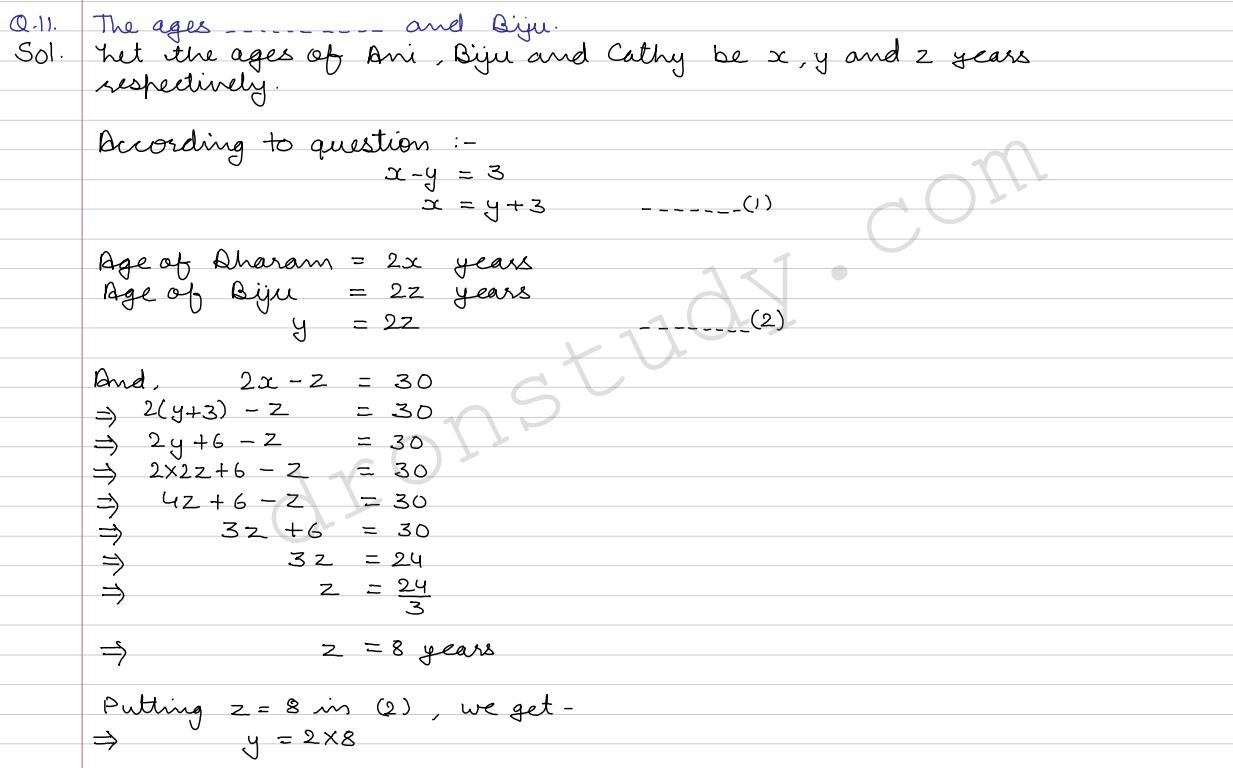 Q.11. The ages ----------- and Biju.
Sol. Let the ages of Ani, Biju and Cathy be x, y and z years
respectively.
According to question :-
x-y = 3
x = y+3 -------(1)
Age of Dharam = 2x years
Age of Biju = 2z years
y = 2z --------(2)
And, 2x - z = 30
⇒ 2(y+3) - z = 30
⇒ 2y+6 - z = 30
⇒ 2×2z+6 - z = 30
⇒ 4z + 6 - z = 30
⇒ 3z + 6 = 30
⇒ 3z = 24
⇒ z = 24/3
⇒ z = 8 years
Putting z = 8 in (2), we get -
⇒ y = 2×8
dronstudy.com